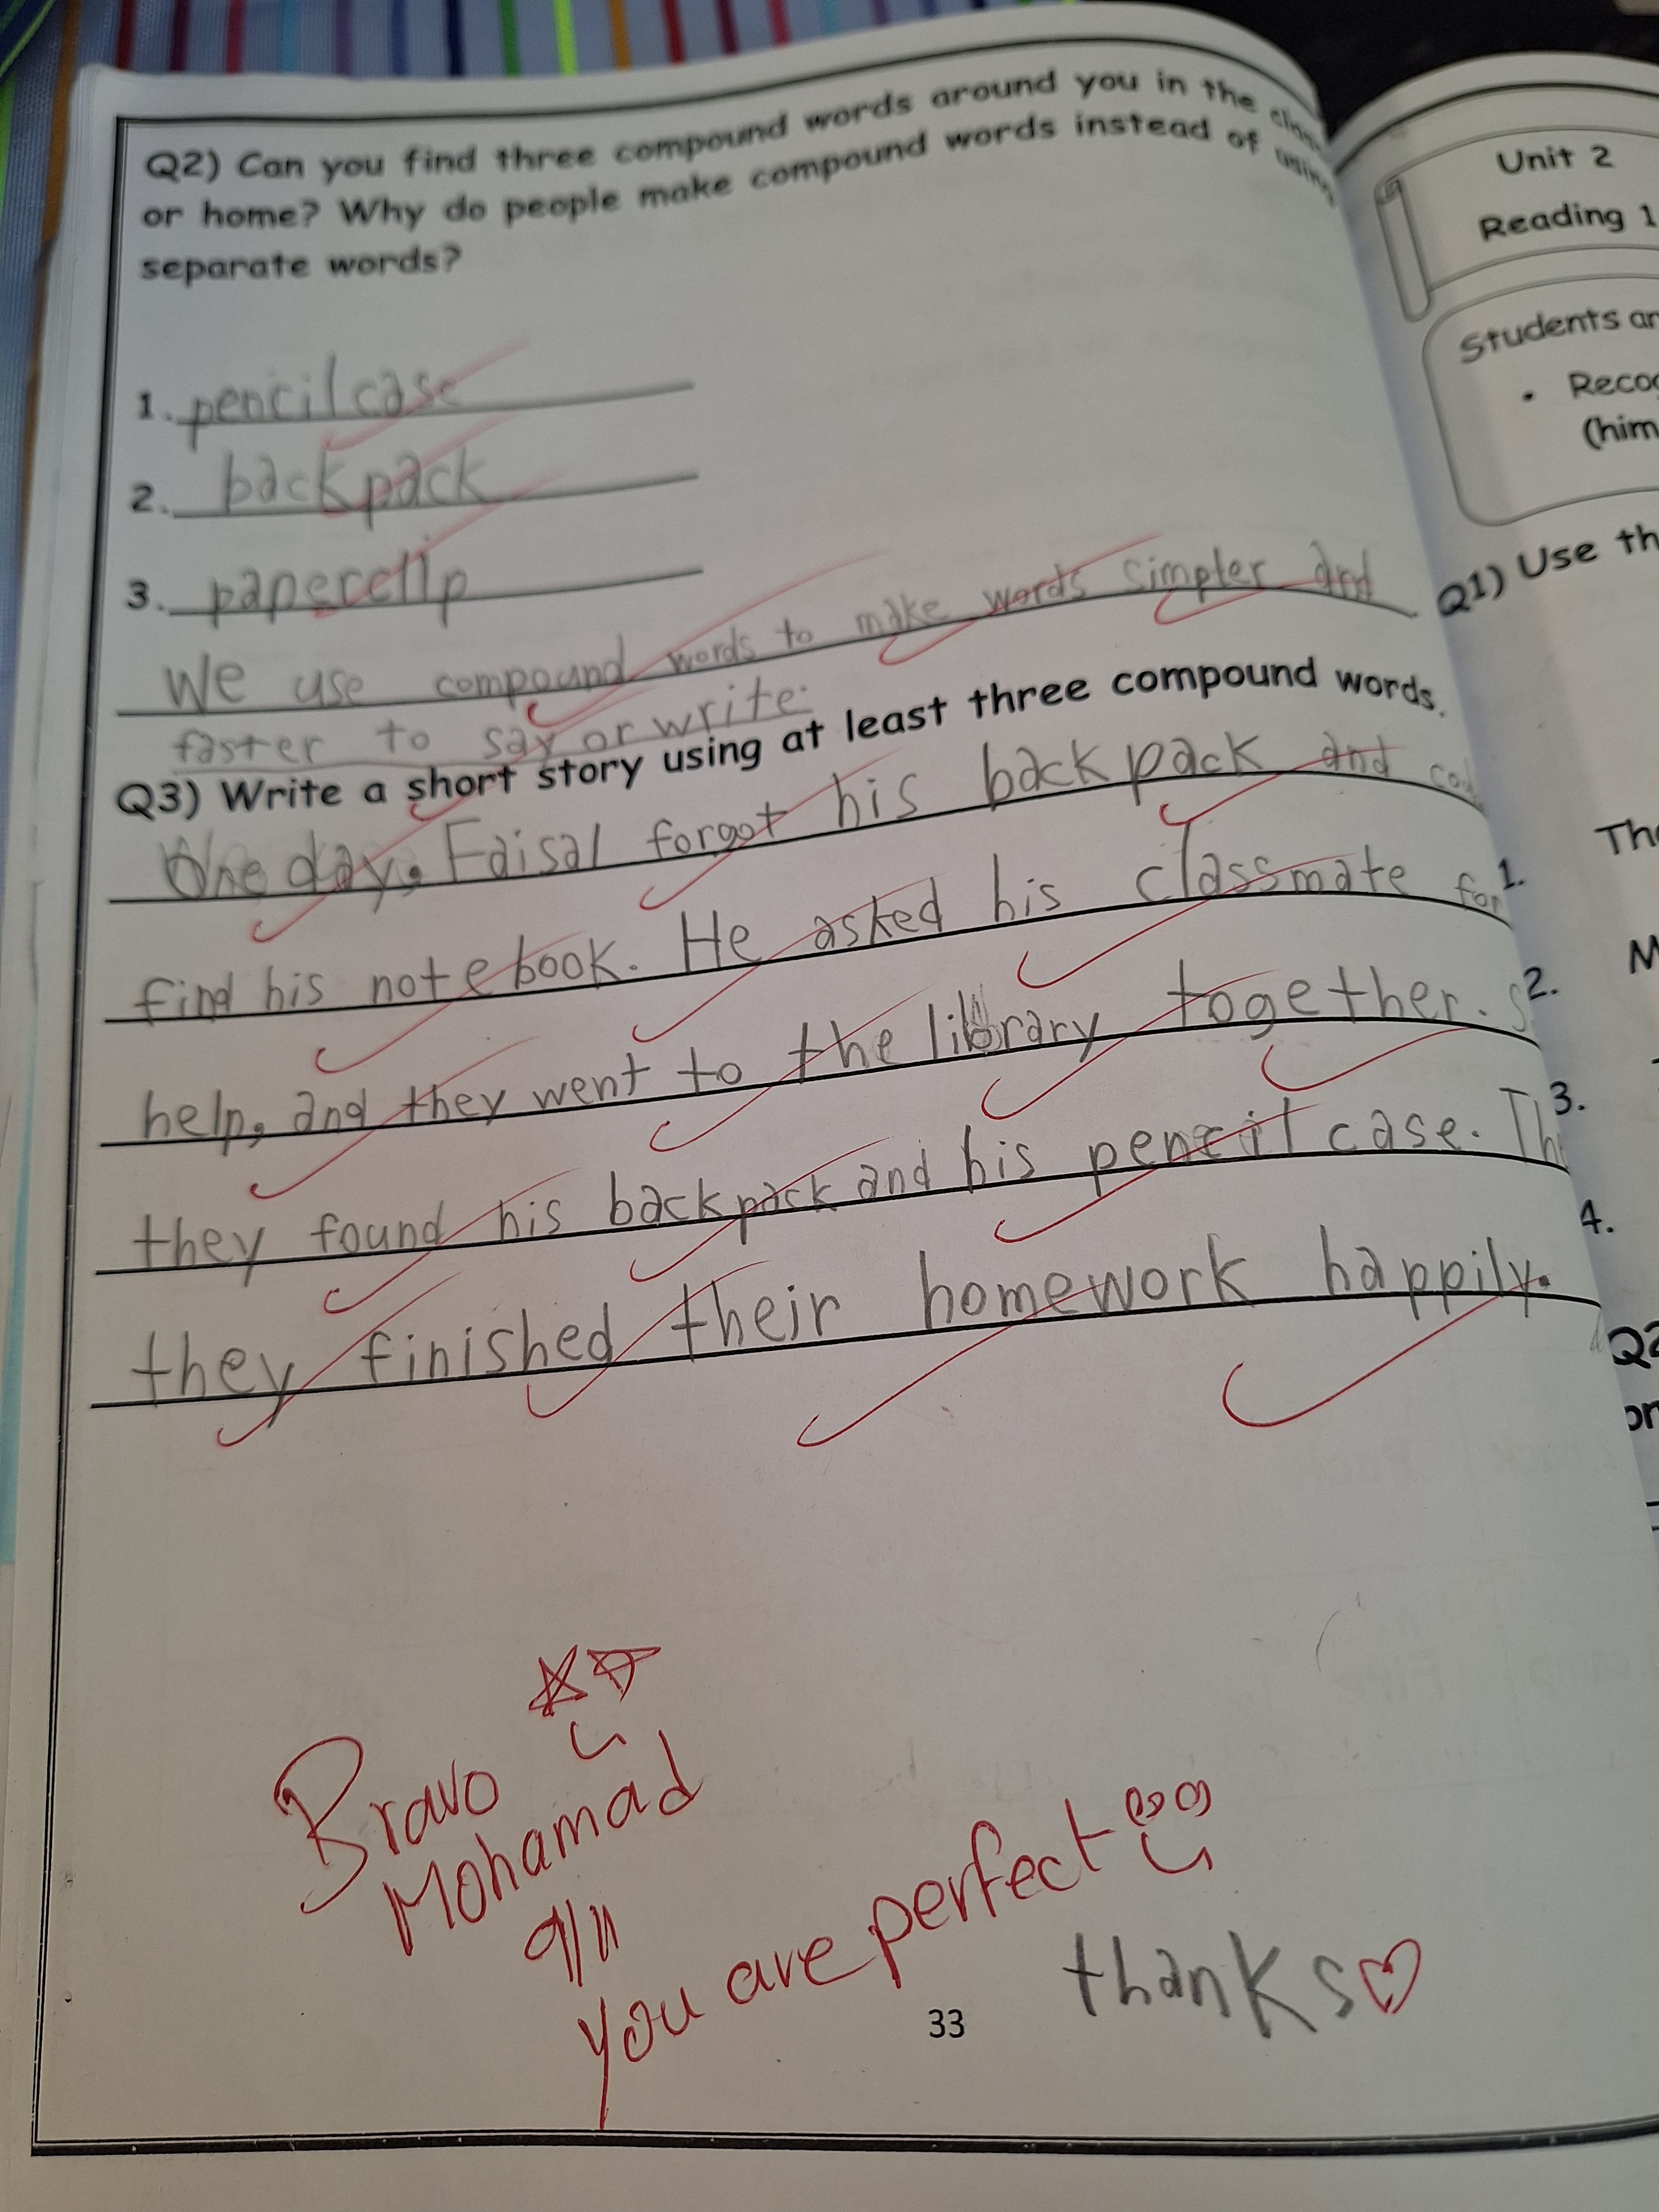 Q2) Can you find three compound words around you in the
or home? Why do people make compound words instead of using
separate words?
1. pencilcase
2. backpack
3. paperclip
We use compound words to make words simpler and
faster to say or write.
Q3) Write a short story using at least three compound words.
One day, Faisal forgot his backpack and
find his notebook. He asked his classmate for
help, and they went to the library together.
they found his backpack and his pencil case.
they finished their homework happily.
Bravo
Mohamad
9/11
you are perfect
thanks
33
Unit 2
Reading 1
Students
(him
Q1) Use
1.
2.
3.
4.
Q2